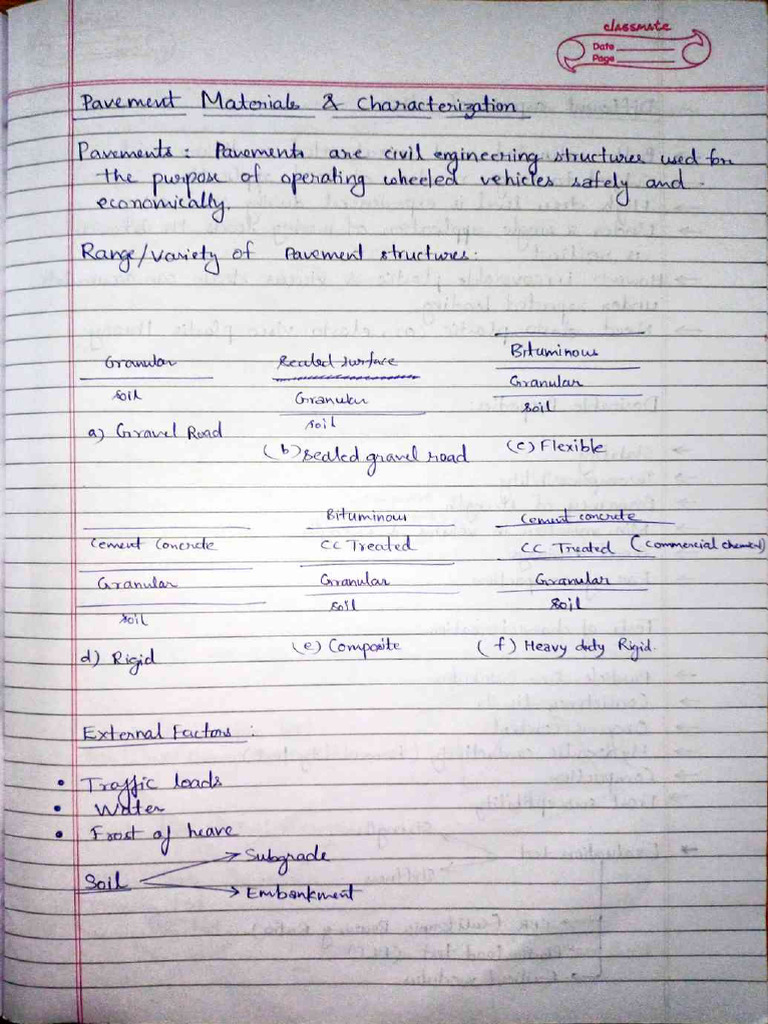 classmate
Date
Page
Pavement Materials & Characterization
Pavements: Pavements are civil engineering structures used for
the purpose of operating wheeled vehicles safely and
economically.
Range/variety of Pavement structures:
Granular
soil
a) Gravel Road
Sealed surface
Granular
soil
(b) Sealed gravel road
Bituminous
Granular
soil
(c) Flexible
Cement Concrete
Granular
soil
d) Rigid
Bituminous
CC Treated
Granular
soil
(e) Composite
Cement concrete
CC Treated (Commercial chemical)
Granular
soil
(f) Heavy duty Rigid.
External Factors:
• Traffic loads
• Water
• Frost of heave
Soil
Subgrade
Embankment